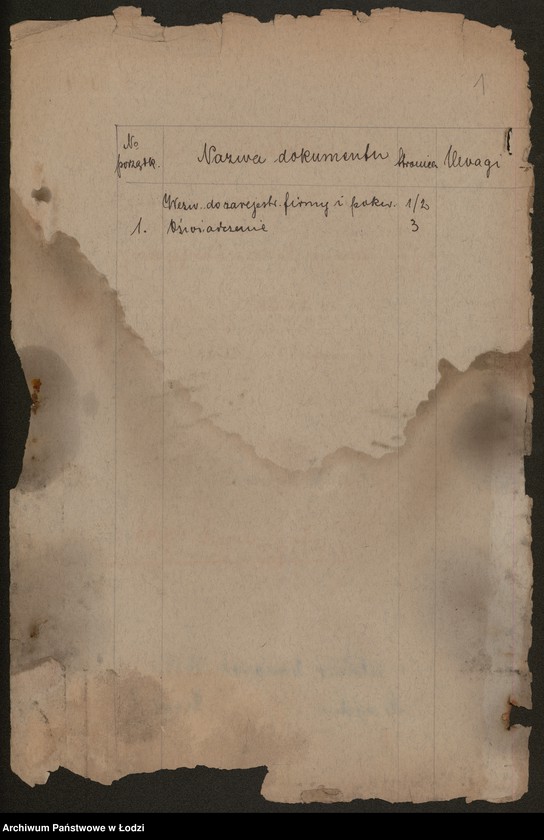 1
№ porządk. Nazwa dokumentu Stronica Uwagi
Wezw. do zarejestr. firmy i pokw. 1/2
1. Oświadczenie 3
Archiwum Państwowe w Łodzi